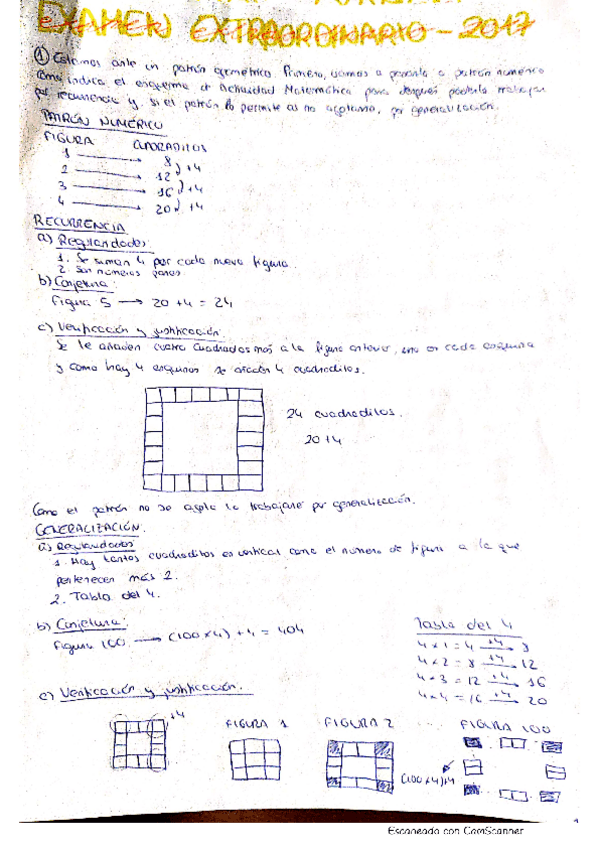 EXAMEN EXTRAORDINARIO - 2017
① Estamos ante un patrón geométrico. Primero, vamos a pasarlo a patrón numérico
como indica el esquema de Actividad Matemática para después poderlo trabajar
por recurrencia y, si el patrón lo permite al no agotarse, por generalización.
PATRÓN NUMÉRICO
FIGURA CUADRADITOS
1 → 8
2 → 12 +4
3 → 16 +4
4 → 20 +4
RECURRENCIA
a) Regularidades
1. Se suman 4 por cada nueva figura.
2. Son números pares
b) Conjetura:
Figura 5 → 20 + 4 = 24
c) Verificación y justificación.
Se le añaden cuatro cuadrados más a la figura anterior, uno en cada esquina
y como hay 4 esquinas se añaden 4 cuadraditos.
24 cuadraditos.
20+4
Como el patrón no se agota lo trabajaré por generalización.
GENERALIZACIÓN.
a) Regularidades
1. Hay tantos cuadraditos en vertical como el número de figura a la que
pertenecen más 2.
2. Tabla del 4.
b) Conjetura:
Figura 100 → (100x4) + 4 = 404
Tabla del 4
4 x 1 = 4 +4→ 8
4 x 2 = 8 +4→ 12
4 x 3 = 12 +4→ 16
4 x 4 = 16 +4→ 20
c) Verificación y justificación.
+4
FIGURA 1 FIGURA 2 ... FIGURA 100
(100x4)+4
1
Escaneado con CamScanner